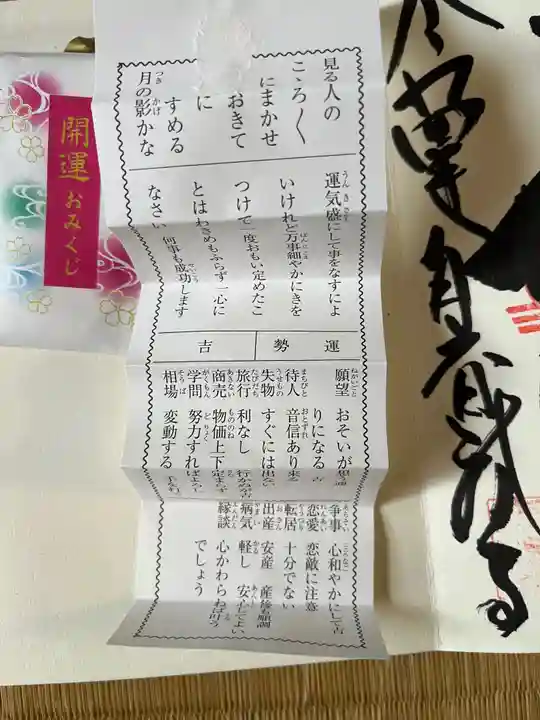 開運おみくじ
見る人の
こゝろ〱
にまかせ
おきて
に
すめる
月の影かな
運気盛にして事をなすによ
いけれど万事細やかにきを
つけて一度おもい定めたこ
とはわきめもふらず一心に
なさい 何事も成功します
運勢 吉
願望 おそいが
りになる
待人 音信あり 来る
失物 すぐには出ない
旅行 利なし
商売 物価上下 定まらず
学問 努力すればよろし
相場 変動する
争事 心和やかにして吉
恋愛 恋敵に注意
転居 十分でない
出産 安産 産後も順調
病気 軽し 安心でよい
縁談 心かわらねば叶う
でしょう